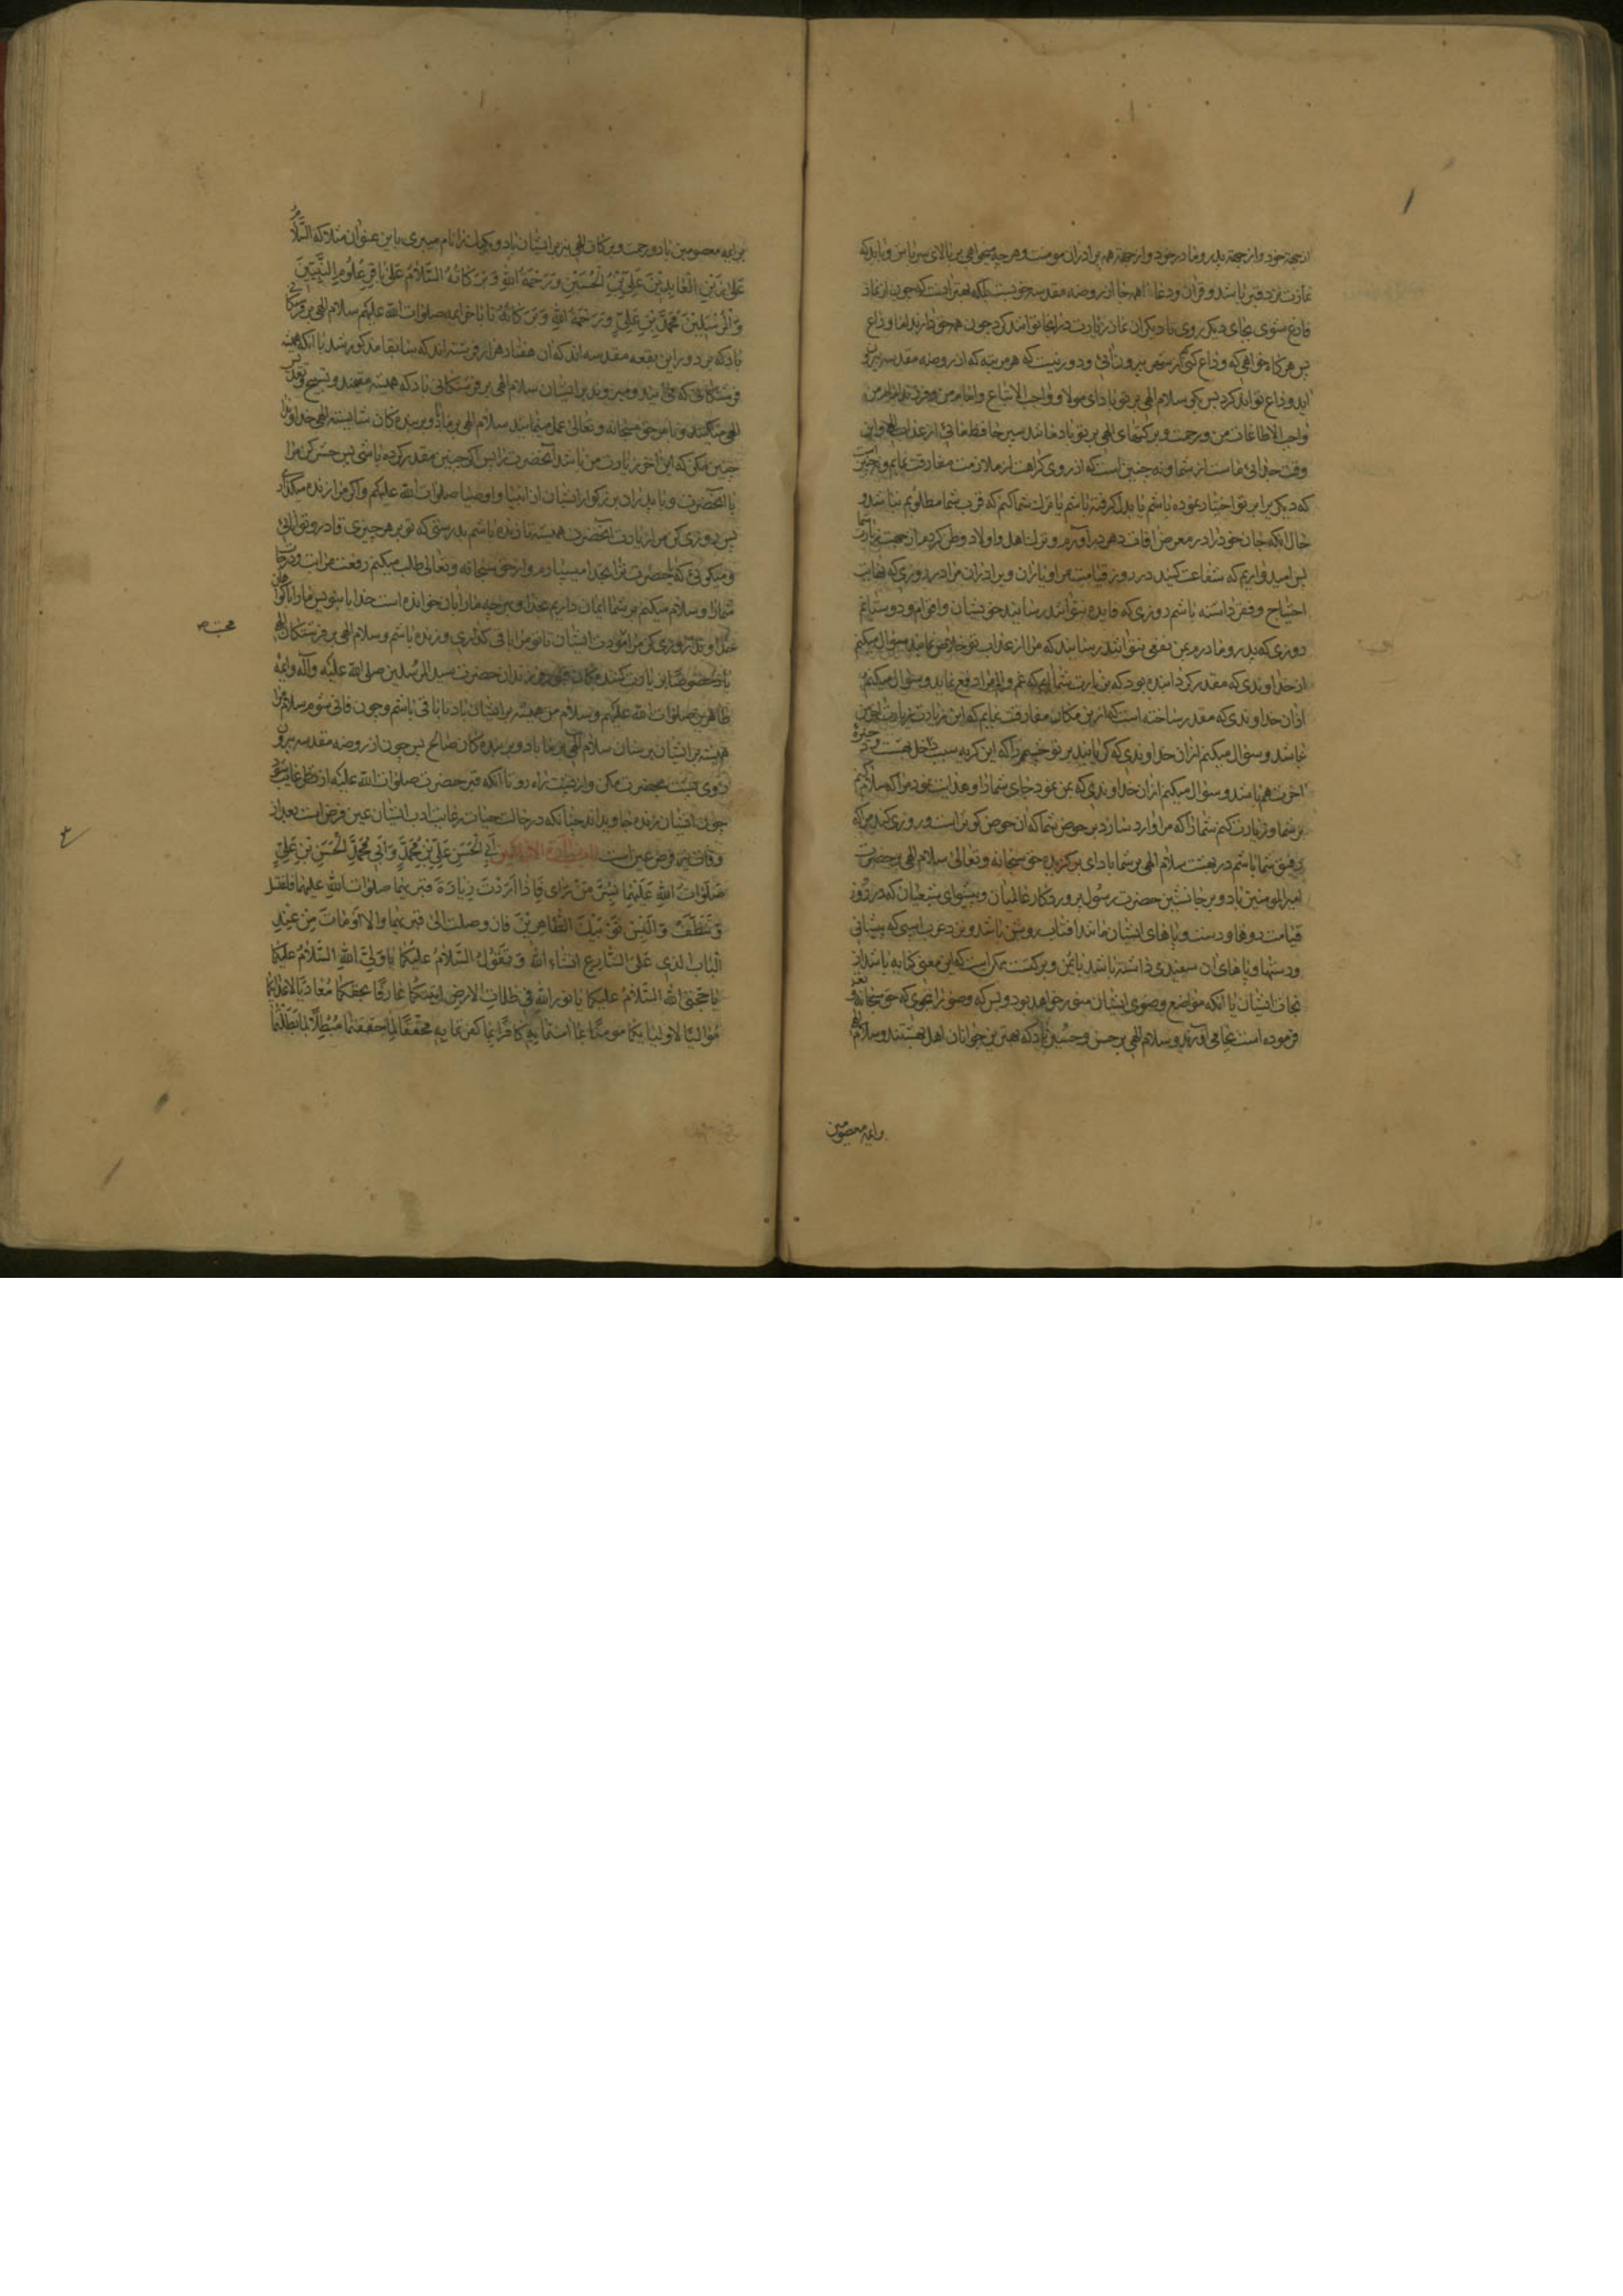 از جهة خود و از جهة پدر و مادر خود و از جهة همه برادران مومنت و هر چه میخواهی بر بالای سر باش و باید که
نمازت نزد قبر باشد و قران و دعا را همه جا از روضه مقدسه خوبست بلکه بهتر انست که چون از نماز
فارغ شوی بجای دیکر روی تا دیکران نماز زیارت در انجا توانند کرد چون همه حق دارند اما وداع
پس هر کاه خواهی که وداع کنی که از شهر بیرون آئی و دور نیست که هر مرتبه که از روضه مقدسه بیرون
اید وداع تواند کرد پس بکو سلام الهی بر تو باد ای مولا و واجب الاتباع و امام من و فرزند امام من
واجب الاطاعات من و رحمت و برکتهای الهی بر تو باد
وقت جدائی ماست از شما و نه چنین است که از روی کراهت از ملازمت مفارقت نمایم و نه چنین است
که دیکری را بر تو اختیار نموده باشم یا بدل کرفته باشم یا ترك شما کنم که قرب شما مطلوبم نباشد و
حال انکه جان خود را در معرض افات دهر در آوردم و ترك اهل و اولاد و وطن کردم از جهت زیارت شما
پس امیدوارم که شفاعت کنید در روز قیامت مرا و یاران و برادران مرا در روزی که نهایت
احتیاج و فقر داشته باشم روزی که فایده نتوانند رسانید خویشان و اقوام و دوستانم
روزی که پدر و مادرم بمن نفعی نتوانند رسانید که مرا از عذاب تو خلاص نمایند سؤال میکنم
از خداوندی که مقدر کردانیده بود که بزیارت شما ایم که غم و الم مرا دفع نماید و سؤال میکنم
ازان خداوندی که مقدر ساخته است که ازین مکان مفارقت نمایم که این زیارت زیارت آخرین
نباشد و سؤال میکنم ازان خداوندی که کریانید بر تو چشم مرا که این کریه سبب دخل بهشت و ذخیره
آخرت هم باشد و سؤال میکنم ازان خداوندی که بمن نمود جای شما را و هدایت نمود مرا که سلام کنم
بر شما و زیارت کنم شما را که مرا وارد سازد بر حوض شما که ان حوض کوثر است و روزی کند مرا که
رفیق شما باشم در بهشت سلام الهی بر شما باد ای برکزیده حق سبحانه و تعالی سلام الهی بر حضرت
امیر المومنین باد و بر جانشین حضرت رسول پروردکار عالمیان و پیشوای شیعیان که در روز
قیامت روها و دست و پاهای ایشان مانند افتاب روشن باشد و نزد عرب اسبی که پیشانی
و دستها و پاهای ان سفیدی داشته باشد با یمن و برکت ممکن است که این معنی کنایه باشد از
نجات ایشان یا انکه مواضع وضوی ایشان منور خواهد بود و بس که وضو را بنحوی که حق سبحانه و تعالی
فرموده است بجا می آورند و سلام الهی بر حسن و حسین باد که بهترین جوانان اهل بهشتند و سلام الهی
و ائمه معصومین
بر ایمه معصومین باد و رحمت و برکات الهی نیز بر ایشان باد و یکیك را نام میبری باین عنوان مثلا که السَّلامُ
عَلی زَیْنِ الْعَابِدِیْنَ عَلِیِّ بْنِ الْحُسَیْنِ وَ رَحْمَةُ اللهِ وَ بَرَکَاتُهُ السَّلامُ عَلیٰ بَاقِرِ عُلُومِ النَّبِیِّیْنَ
وَ الْمُرْسَلِیْنَ مُحَمَّدِ بْنِ عَلِیٍّ وَ رَحْمَةُ اللهِ وَ بَرَکَاتُهُ تا باخر ایمه صلوات الله علیهم سلام الهی بر فرشتکانی
باد که بر دور این بقعه مقدسه اند که ان هفتاد هزار فرشته اند که سابقا مذکور شد یا انکه همیشه
فرشتکانی که می ایند و میروند بر ایشان سلام الهی بر فرشتکانی باد که همیشه مقیمند و تسبیح و تقدیس
الهی میکنند و بامر حق سبحانه و تعالی عمل مینمایند سلام الهی بر ما باد و بر بنده کان شایسته الهی خداوندا
چنین مکن که این اخر زیارت من باشد آنحضرت را پس اکر چنین مقدر کرده باشی پس حشر کن مرا
با آنحضرت و با پدران بزرکوار ایشان از انبیا و اوصیا صلوات الله علیهم و اکر مرا زنده میکذاری
پس روزی کن مرا زیارت آنحضرت همیشه تا زنده باشم بدرستی که تو بر هر چیزی قادر و توانائی
و میکوئی که یا حضرت ترا بخدا میسپارم و از حق سبحانه و تعالی طلب میکنم رفعت مراتب و درجات
شما را و سلام میکنم بر شما ایمان داریم بخدا و بهر چه ما را بان خوانده است خدایا بنویس ما را با کواهان
خداوندا روزی کن مرا مودت ایشان تا تو مرا باقی کذاری و زنده باشم و سلام الهی بر فرشتکان الهی
باد خصوصا بر زیارت کننده کان قبور فرزندان حضرت سید المرسلین صلی الله علیه و آله و ایمه
طاهرین صلوات الله علیهم و سلام من همیشه بر ایشان باد تا باقی باشم و چون فانی شوم سلام مرا
همیشه بر ایشان برسان سلام الهی بر ما باد و بر بنده کان صالح پس چون از روضه مقدسه بیرون
روی پشت بحضرت مکن و از عقب راه رو تا انکه قبر حضرت صلوات الله علیه از نظر غایب شود
چون ایشان زنده جاویدانند چنانکه در حالت حیات رعایت ادب ایشان عین فرض است بعد از
وفات نیز فرض عین است أَبِی الْحَسَنِ عَلِیِّ بْنِ مُحَمَّدٍ وَ أَبِی مُحَمَّدٍ الْحَسَنِ بْنِ عَلِیٍّ
صَلَوَاتُ اللهِ عَلَیْهِمَا بِسُرَّ مَنْ رَایٰ فَاِذَا اَرَدْتَ زِیَارَةَ قبریهما صلوات الله علیهما فاغتسل
وَ تَنَظَّفْ وَ الْبَسْ ثَوْبَیْكَ الطَّاهِرَیْنِ فان وصلت الی قبریهما و الا اَوْمَاتَ مِنْ عِنْدِ
الْبَابِ الذی عَلَی الشَّارِعِ انشاء الله وَ تَقُوْلُ السَّلامُ عَلَیْکُمَا یَا وَلِیَّیِ اللهِ السَّلامُ عَلَیْکُمَا
یَا حُجَّتَیِ الله السَّلامُ علیکما یا نورَیِ اللهِ فی ظلمات الارض اَتَیْتُکُمَا عَارِفًا بِحَقِّکُمَا مُعَادِیًا لِاَعْدَائِکُمَا
مُوَالِیًا لِاَوْلِیَائِکُمَا مومنًا بما امنتما بِهِ کَافِرًا بِمَا کَفَرْتُمَا بِهِ مُحَقِّقًا لِمَا حَقَّقْتُمَا مُبْطِلًا لِمَا اَبْطَلْتُمَا